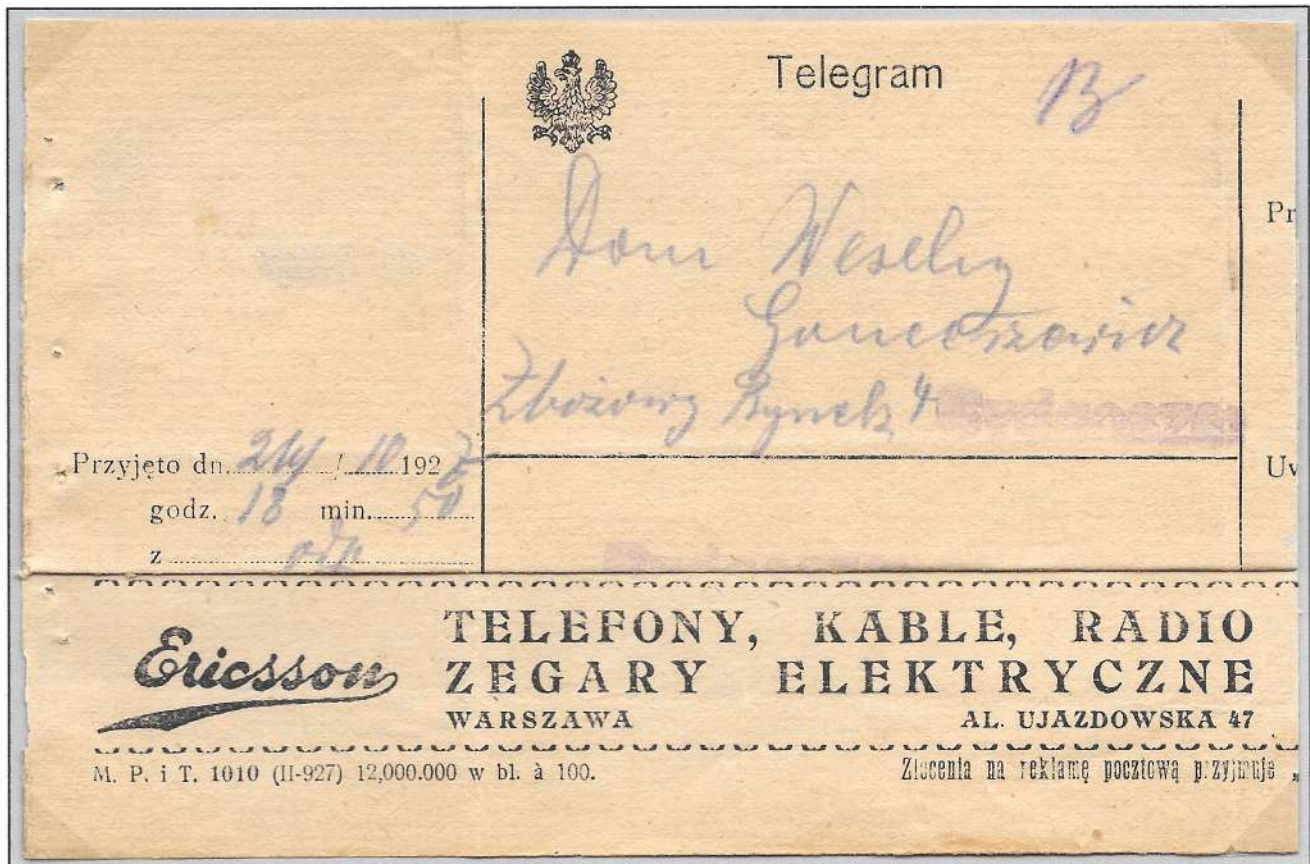 Telegram
B
Pr
Dom Weselny
Zbożowy Rynek 4
Przyjęto dn. 24/10 1927
Uw
godz. 18 min. 50
z odp
Ericsson
TELEFONY, KABLE, RADIO
ZEGARY ELEKTRYCZNE
WARSZAWA AL. UJAZDOWSKA 47
M. P. i T. 1010 (II-927) 12,000.000 w bl. à 100.
Zlecenia na reklamę pocztową przyjmuje „